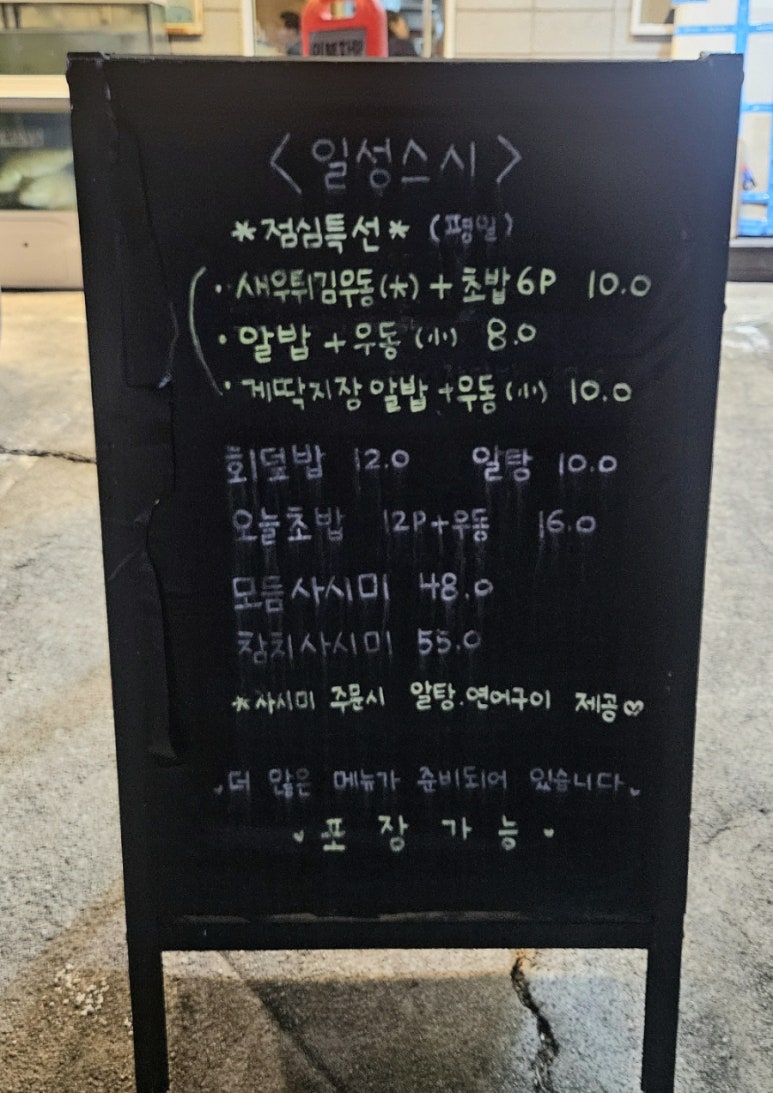 <일성스시>
*점심특선* (평일)
· 새우튀김우동(大) + 초밥6P 10.0
· 알밥 + 우동(小) 8.0
· 게딱지장알밥+우동(小) 10.0
회덮밥 12.0 알탕 10.0
오늘초밥 12P+우동 16.0
모듬사시미 48.0
참치사시미 55.0
*사시미 주문시 알탕.연어구이 제공♡
더 많은 메뉴가 준비되어 있습니다.
· 포 장 가 능 ·